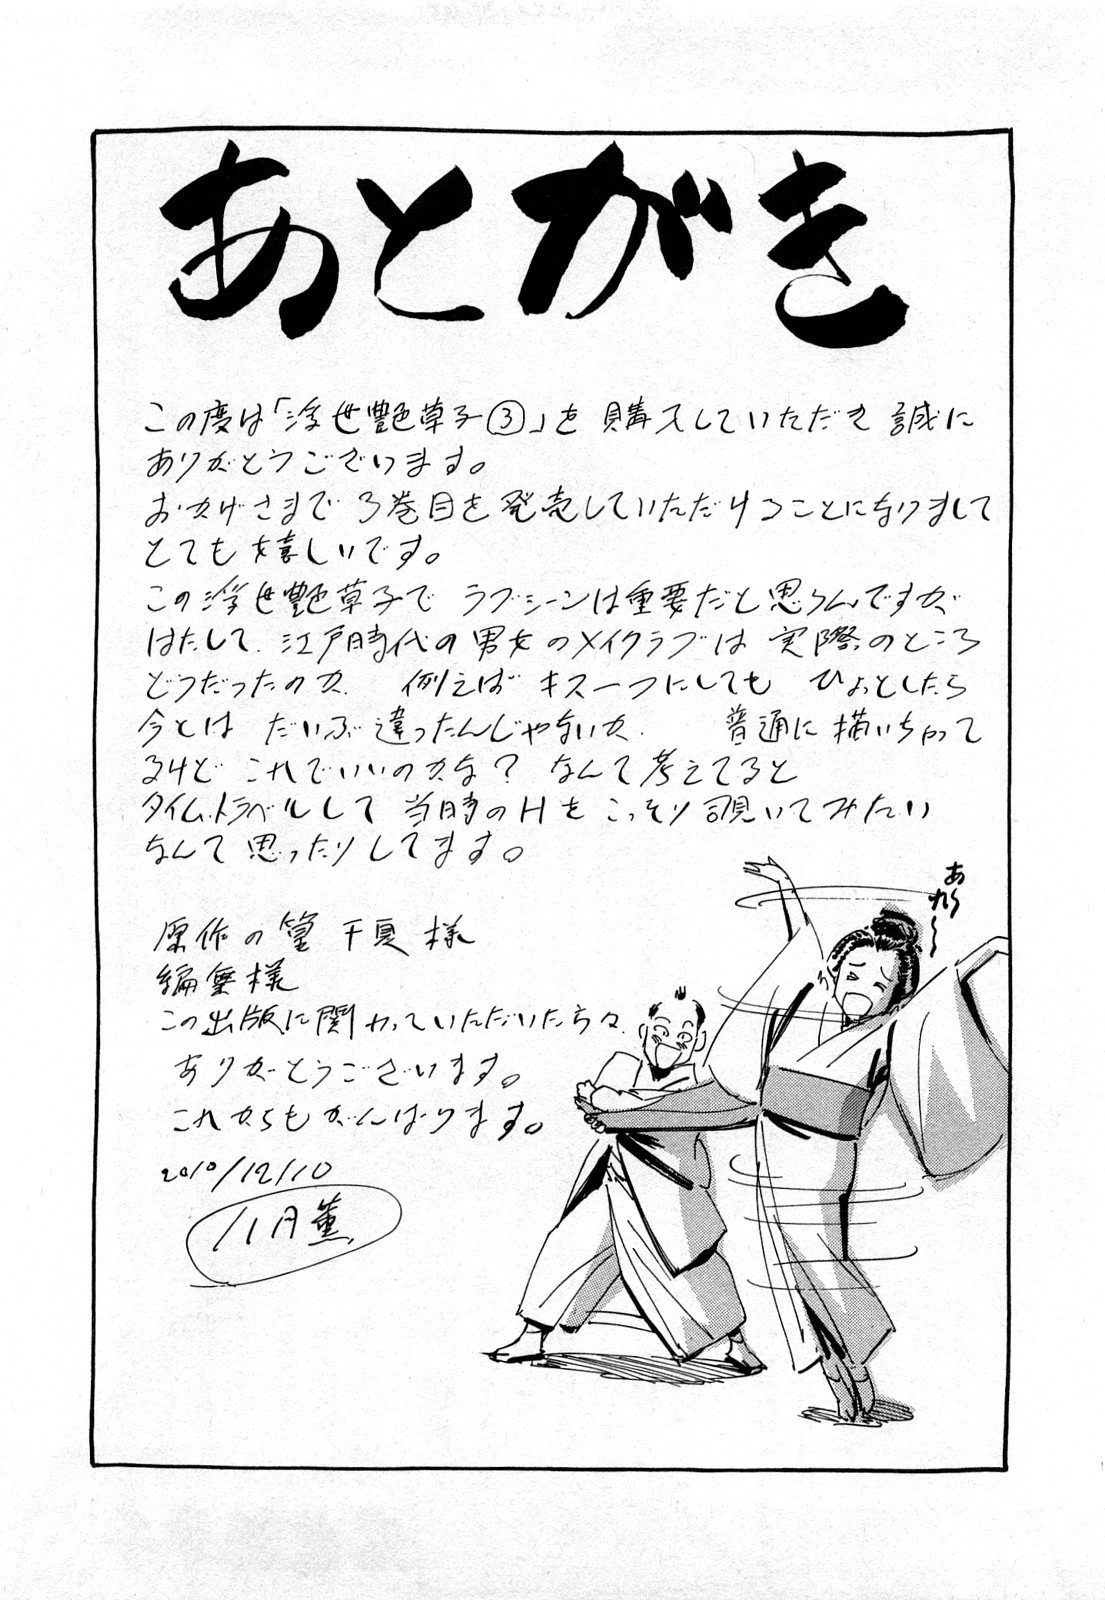 あとがき
この度は「浮世艶草子③」を購入していただき誠に
ありがとうございます。
おかげさまで3巻目を発売していただけることになりまして
とても嬉しいです。
この浮世艶草子でラブシーンは重要だと思うんですが
はたして、江戸時代の男女のメイクラブは実際のところ
どうだったのか、例えばキス一つにしてもひょっとしたら
今とはだいぶ違ったんじゃないか、普通に描いちゃって
るけどこれでいいのかな?なんて考えてると
タイムトラベルして当時のHをこっそり覗いてみたい
なんて思ったりしてます。
原作の篁千夏様
編集様
この出版に関わっていただいた方々、
ありがとうございます。
これからもがんばります。
2010/12/10
八月薫
あれ〜